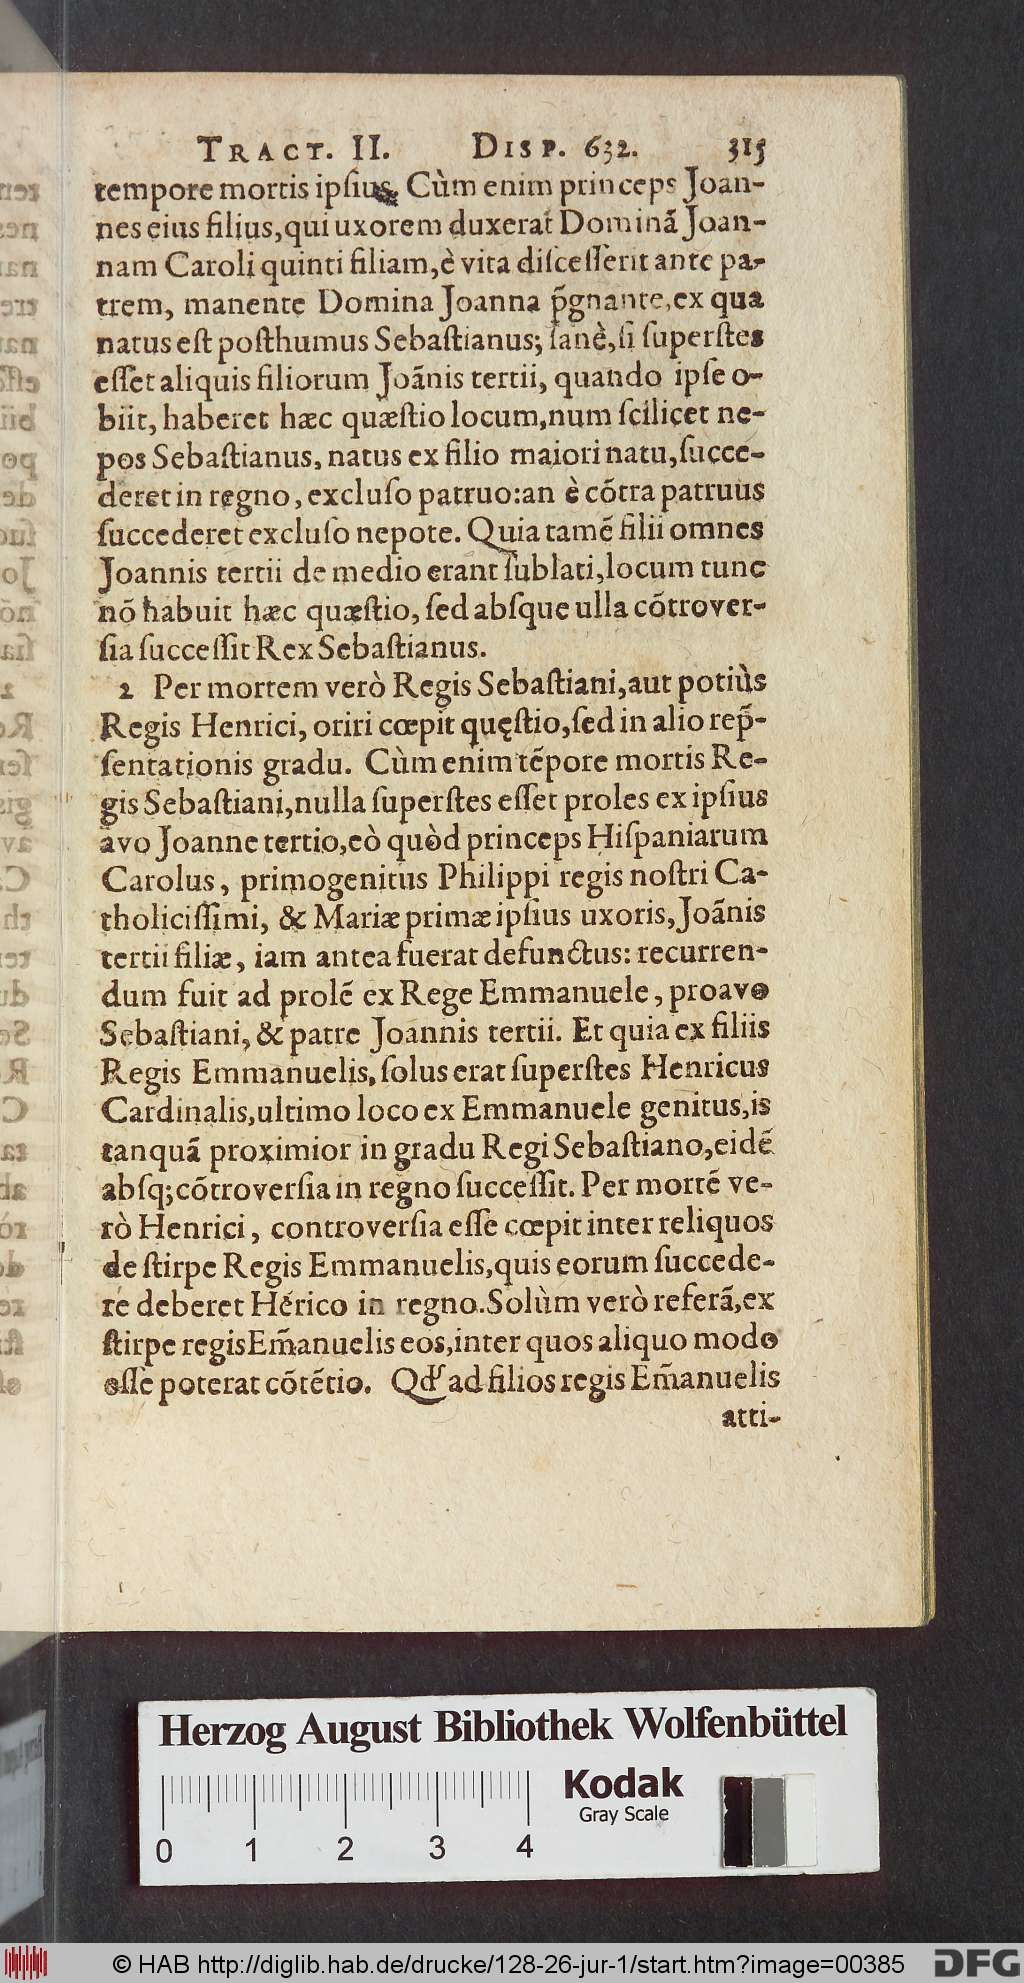 TRACT. II. DISP. 632. 315
tempore mortis ipſius. Cùm enim princeps Joan-
nes eius filius, qui uxorem duxerat Dominā Joan-
nam Caroli quinti filiam, è vita diſceſſerit ante pa-
trem, manente Domina Joanna p̄gnante, ex qua
natus eſt poſthumus Sebaſtianus; ſanè, ſi ſuperſtes
eſſet aliquis filiorum Joānis tertii, quando ipſe o-
biit, haberet hæc quæſtio locum, num ſcilicet ne-
pos Sebaſtianus, natus ex filio maiori natu, ſucce-
deret in regno, excluſo patruo: an è cōtra patruus
ſuccederet excluſo nepote. Quia tamē filii omnes
Joannis tertii de medio erant ſublati, locum tunc
nō habuit hæc quæſtio, ſed abſque ulla cōtrover-
ſia ſucceſſit Rex Sebaſtianus.
2 Per mortem verò Regis Sebaſtiani, aut potiùs
Regis Henrici, oriri cœpit quęſtio, ſed in alio rep̄-
ſentationis gradu. Cùm enim tēpore mortis Re-
gis Sebaſtiani, nulla ſuperſtes eſſet proles ex ipſius
avo Joanne tertio, eò quòd princeps Hiſpaniarum
Carolus, primogenitus Philippi regis noſtri Ca-
tholiciſſimi, & Mariæ primæ ipſius uxoris, Joānis
tertii filiæ, iam antea fuerat defunctus: recurren-
dum fuit ad prolē ex Rege Emmanuele, proavo
Sebaſtiani, & patre Joannis tertii. Et quia ex filiis
Regis Emmanuelis, ſolus erat ſuperſtes Henricus
Cardinalis, ultimo loco ex Emmanuele genitus, is
tanquā proximior in gradu Regi Sebaſtiano, eidē
abſq; cōtroverſia in regno ſucceſſit. Per mortē ve-
rò Henrici, controverſia eſſe cœpit inter reliquos
de ſtirpe Regis Emmanuelis, quis eorum ſuccede-
re deberet Hērico in regno. Solùm verò referā, ex
ſtirpe regis Em̄anuelis eos, inter quos aliquo modo
eſſe poterat cōtētio. Qd' ad filios regis Em̄anuelis
atti-
Herzog August Bibliothek Wolfenbüttel
Kodak
Gray Scale
0 1 2 3 4
© HAB http://diglib.hab.de/drucke/128-26-jur-1/start.htm?image=00385
DFG